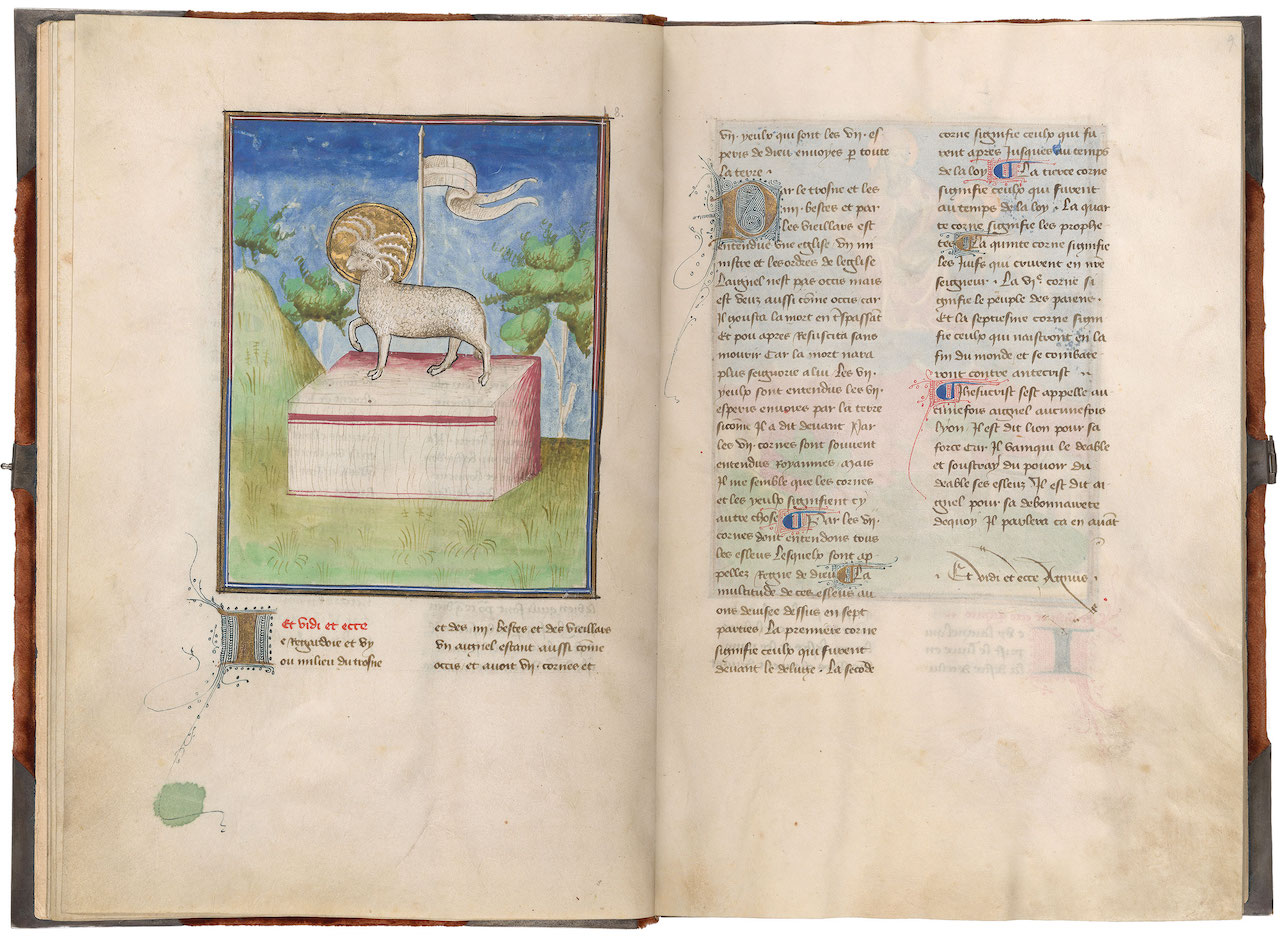 8.
Et vidi et ecce
e Regardoie et vy
ou milieu du trosne
et des iiii. bestes et des vieillars
vn aignel estant aussi come
occis et auoit vii. cornes et
vii. yeulx qui sont les vii. es
peris de dieu enuoyes p toute
la terre.
Par le trosne et les
iiii. bestes et par
les vieillars est
entendue vne eglise vn mi
nistre et les ordres de leglise
Laignel nest pas occis mais
est veuz aussi come occis car
Il gousta la mort en t̃spassant
Et pou apres Resuscita sans
mourir Car la mort naura
plus seignorie a lui Les vii.
yeulx sont entendus les vii.
esperis enuoies par la terre
sicome Il a dit deuant Par
les vii. cornes sont souuent
entendus Royaumes Mais
Il me semble que les cornes
et les yeulx signifient cy
autre chose Par les vii.
cornes dont entendons tous
les esleus Lesquelx sont ap
pellez Regne de dieu La
multitude de ces esleus a
ons deuisee dessus en sept
parties La premiere corne
signifie ceulx qui fuvent
deuant le deluge. La secode
corne signifie ceulx qui fu
rent apres Jusques au temps
de la loy La tierce corne
signifie ceulx qui fuvent
au temps de la loy. La quar
te corne signifie les prophe
tes La quinte corne signifie
les Juifs qui creuvent en nre
seigneur. La vie. corne si
gnifie le peuple des paiens.
Et la septiesme corne signi
fie ceulx qui naistront en la
fin du monde et se combate
ront contre antecrist
Jhesucrist sest appelle au
cunefois aignel aucunefois
Lyon. Il est dit lion pour sa
force Car Il vainqui le deable
et soustray du pouoir du
deable ses esleuz Il est dit ai
gnel pour sa debonnairete
dequoy Il parlera ca en auant
. Et vidi et ecce Agnus.